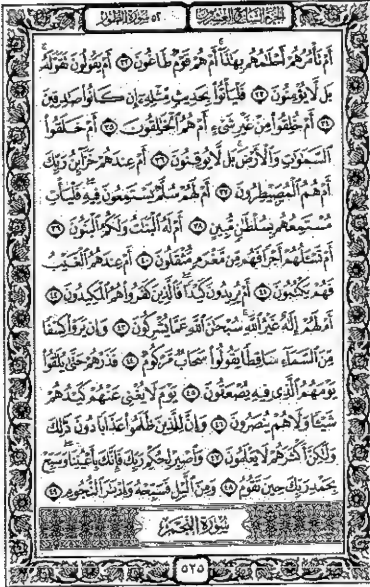 الجزء السابع والعشرون ٥٢ سورة الطور
أَمْ تَأْمُرُهُمْ أَحْلَامُهُم بِهَٰذَا أَمْ هُمْ قَوْمٌ طَاغُونَ ٣٢ أَمْ يَقُولُونَ تَقَوَّلَهُ
بَل لَّا يُؤْمِنُونَ ٣٣ فَلْيَأْتُوا بِحَدِيثٍ مِّثْلِهِ إِن كَانُوا صَادِقِينَ
٣٤ أَمْ خُلِقُوا مِنْ غَيْرِ شَيْءٍ أَمْ هُمُ الْخَالِقُونَ ٣٥ أَمْ خَلَقُوا
السَّمَاوَاتِ وَالْأَرْضَ بَل لَّا يُوقِنُونَ ٣٦ أَمْ عِندَهُمْ خَزَائِنُ رَبِّكَ
أَمْ هُمُ الْمُصَيْطِرُونَ ٣٧ أَمْ لَهُمْ سُلَّمٌ يَسْتَمِعُونَ فِيهِ فَلْيَأْتِ
مُسْتَمِعُهُم بِسُلْطَانٍ مُّبِينٍ ٣٨ أَمْ لَهُ الْبَنَاتُ وَلَكُمُ الْبَنُونَ ٣٩
أَمْ تَسْأَلُهُمْ أَجْرًا فَهُم مِّن مَّغْرَمٍ مُّثْقَلُونَ ٤٠ أَمْ عِندَهُمُ الْغَيْبُ
فَهُمْ يَكْتُبُونَ ٤١ أَمْ يُرِيدُونَ كَيْدًا فَالَّذِينَ كَفَرُوا هُمُ الْمَكِيدُونَ ٤٢
أَمْ لَهُمْ إِلَٰهٌ غَيْرُ اللَّهِ سُبْحَانَ اللَّهِ عَمَّا يُشْرِكُونَ ٤٣ وَإِن يَرَوْا كِسْفًا
مِّنَ السَّمَاءِ سَاقِطًا يَقُولُوا سَحَابٌ مَّرْكُومٌ ٤٤ فَذَرْهُمْ حَتَّىٰ يُلَاقُوا
يَوْمَهُمُ الَّذِي فِيهِ يُصْعَقُونَ ٤٥ يَوْمَ لَا يُغْنِي عَنْهُمْ كَيْدُهُمْ
شَيْئًا وَلَا هُمْ يُنصَرُونَ ٤٦ وَإِنَّ لِلَّذِينَ ظَلَمُوا عَذَابًا دُونَ ذَٰلِكَ
وَلَٰكِنَّ أَكْثَرَهُمْ لَا يَعْلَمُونَ ٤٧ وَاصْبِرْ لِحُكْمِ رَبِّكَ فَإِنَّكَ بِأَعْيُنِنَا وَسَبِّحْ
بِحَمْدِ رَبِّكَ حِينَ تَقُومُ ٤٨ وَمِنَ اللَّيْلِ فَسَبِّحْهُ وَإِدْبَارَ النُّجُومِ ٤٩
سُورَةُ النَّجْمِ
٥٢٥